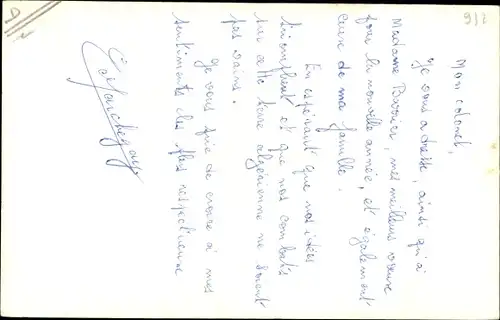 Mon colonel,
Je vous adresse, ainsi qu'à
Madame Bavoier, mes meilleurs voeux
pour la nouvelle année, et également
ceux de ma famille.
En espérant que nos idées
triomphent et que nos combats
sur cette terre algérienne ne soient
pas vains.
Je vous prie de croire à mes
sentiments les plus respectueux